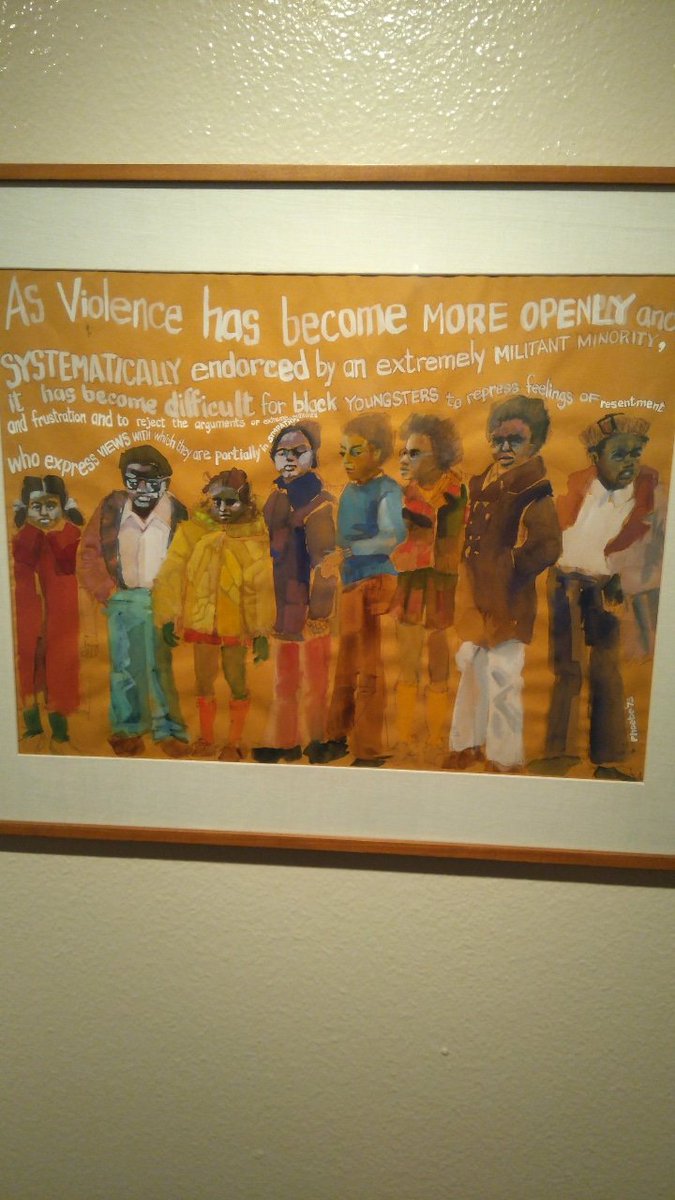 As Violence has become MORE OPENLY and
SYSTEMATICALLY endorced by an extremely MILITANT MINORITY,
it has become difficult for black YOUNGSTERS to repress feelings of resentment
and frustration and to reject the arguments of
who express VIEWS WITH which they are partially in SYMPATHY
Phoebe '73